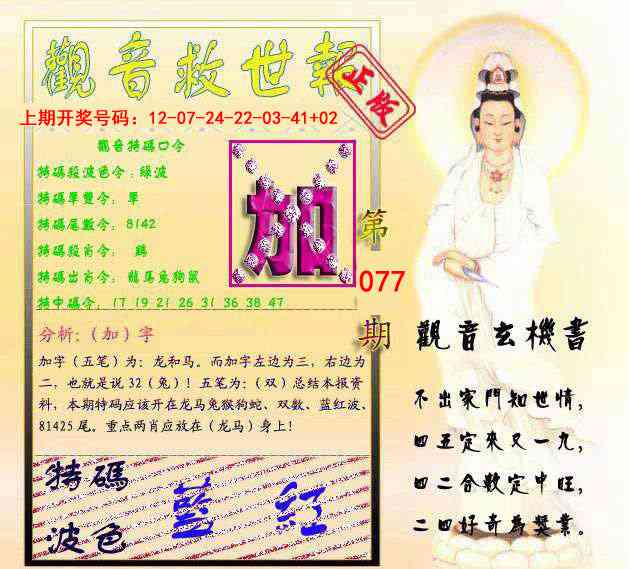 觀音救世報
正版
上期开奖号码：12-07-24-22-03-41+02
觀音特碼口令
特碼段波色令：綠波
特碼單雙令：單
特碼尾數令：8142
特碼段肖令：鷄
特碼出肖令：龍馬兔狗鼠
特中碼令：17 19 21 26 31 36 38 47
加
第
077
期
分析：（加）字
加字（五笔）为：龙和马。而加字左边为三，右边为
二，也就是说 32（兔）！五笔为：（双）总结本报资
料，本期特码应该开在龙马兔猴狗蛇、双数、蓝红波、
81425 尾。重点两肖应放在（龙马）身上！
特碼
波色
藍 紅
觀音玄機書
不出家門知世情，
四五定來又一九，
四二合數定中旺，
二四好奇為獎業。